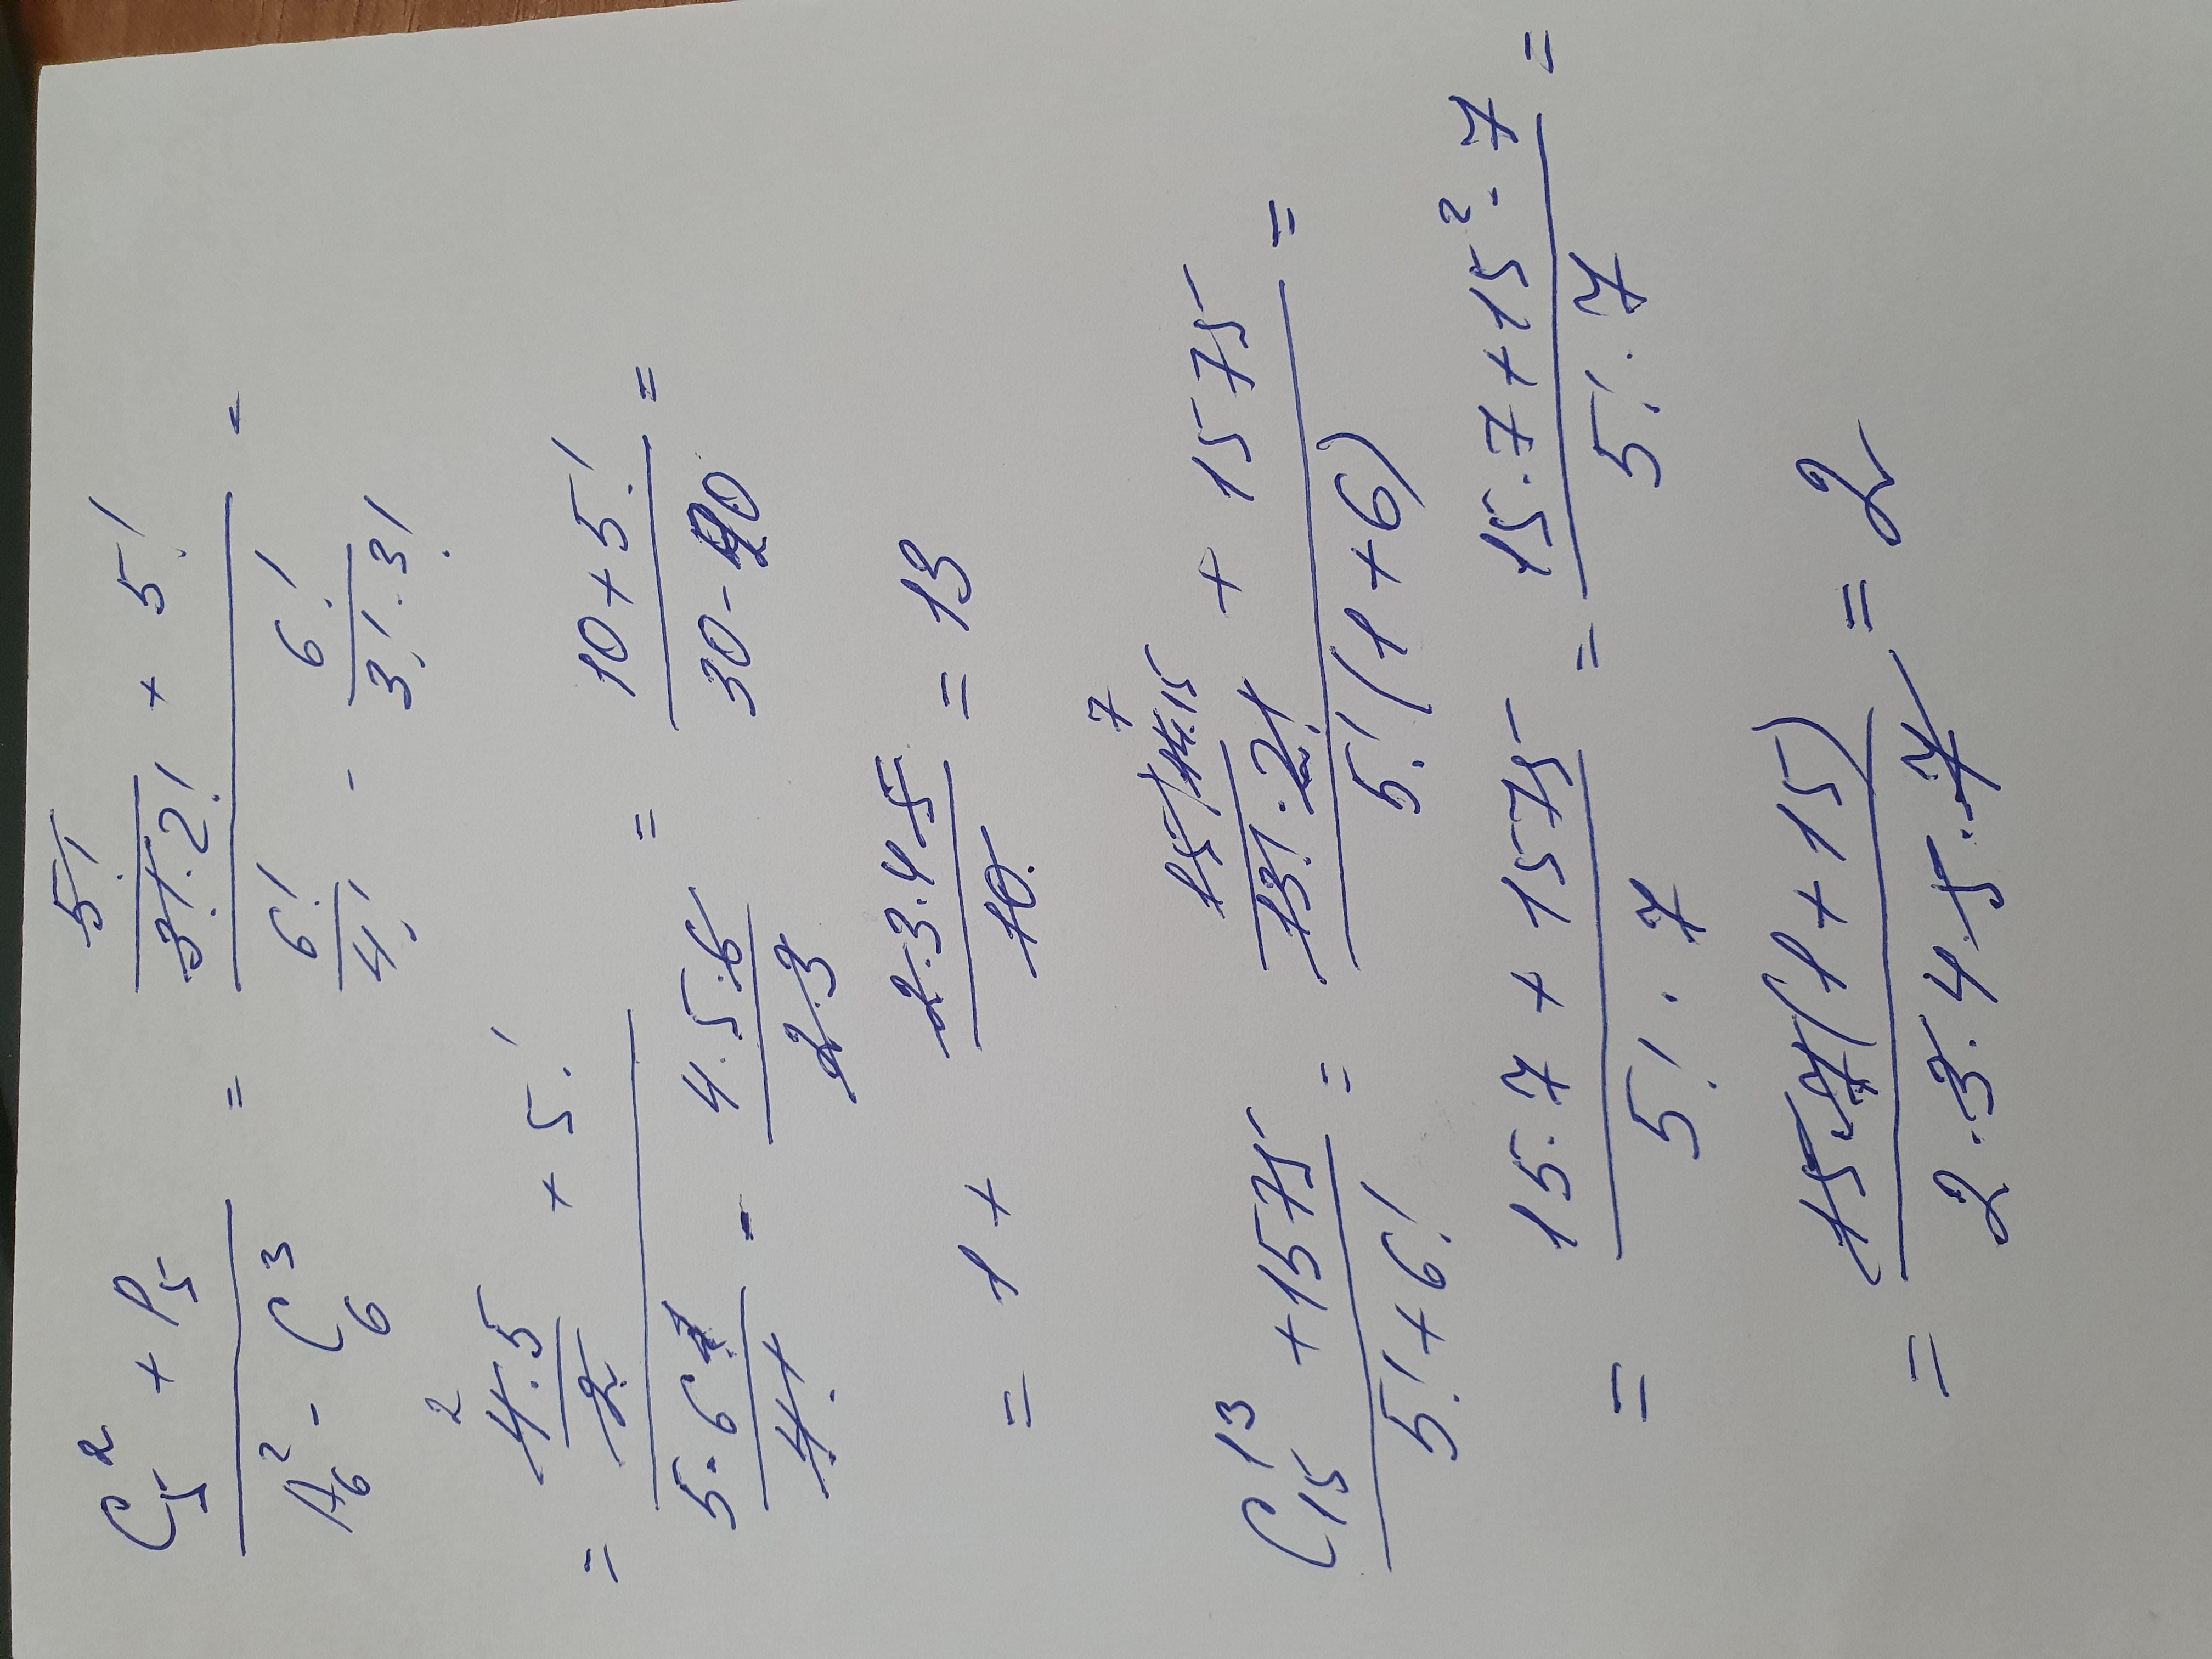 (C₅² + P₅)/(A₆² - C₆³) = (5!/(3!·2!) + 5!)/(6!/4! - 6!/(3!·3!)) =
= (4·5/2 + 5!)/(5·6·4!/4! - 4·5·6/(2·3)) = (10+5!)/(30-20) =
= 1 + 2·3·4·5/10 = 13
(C₁₅¹³ + 1575)/(5!+6!) = (15! 7 14·15/(13!·2!) + 1575)/(5!(1+6)) =
= (15·7 + 1575)/(5!·7) = (15·7+15²·7)/(5!·7) =
= 15·7(1+15)/(2·3·4·5·7) = 2